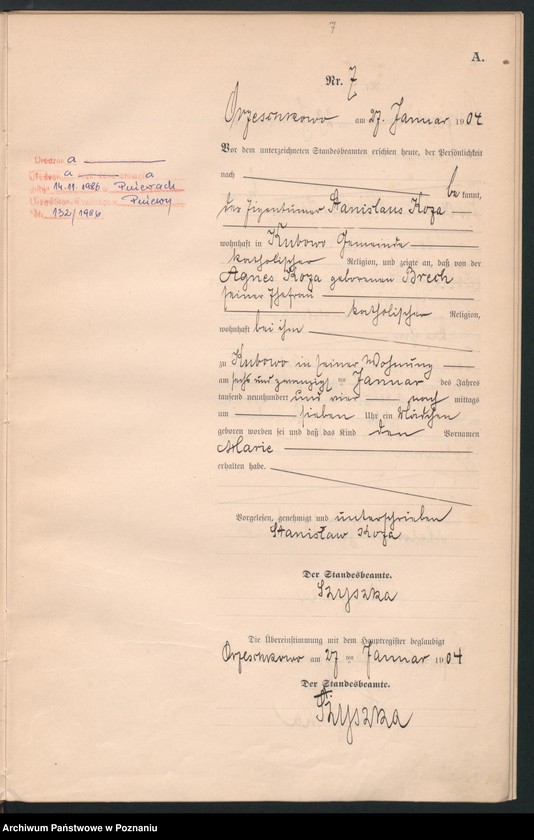 7
A.
Nr. 7
Orzeschkowo am 27. Januar 1904
Vor dem unterzeichneten Standesbeamten erschien heute, der Persönlichkeit
nach bekannt,
der Eigentümer Stanislaus Koza
wohnhaft in Kubowo Gemeinde
katholischer Religion, und zeigte an, daß von der
Agnes Koza geborenen Brech
seiner Ehefrau
katholischer Religion,
wohnhaft bei ihm
zu Kubowo in seiner Wohnung
am sechs und zwanzigsten Januar des Jahres
tausend neunhundert und vier nach mittags
um sieben Uhr ein Mädchen
geboren worden sei und daß das Kind den Vornamen
Marie
erhalten habe.
Vorgelesen, genehmigt und unterschrieben
Stanisław Koza
Der Standesbeamte.
Szyszka
Die Übereinstimmung mit dem Hauptregister beglaubigt
Orzeschkowo am 27 ten Januar 1904
Der Standesbeamte.
Szyszka
a
a a
14.11.1986 Pniewach
Pniewy
Nr. 132/1986
Archiwum Państwowe w Poznaniu